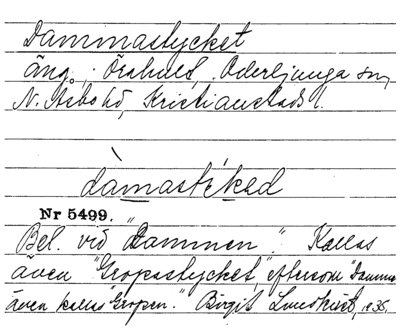 Dammastycket
äng, Örahult, Oderljunga sn,
N. Åsbo hd, Kristianstads l.
dàmastịkəd
Nr 5499.
Bel. vid "Dammen". Kallas
även "Gropastycket", eftersom "Dammen
även kallas "Gropen." Birgit Lundkvist, 1935.